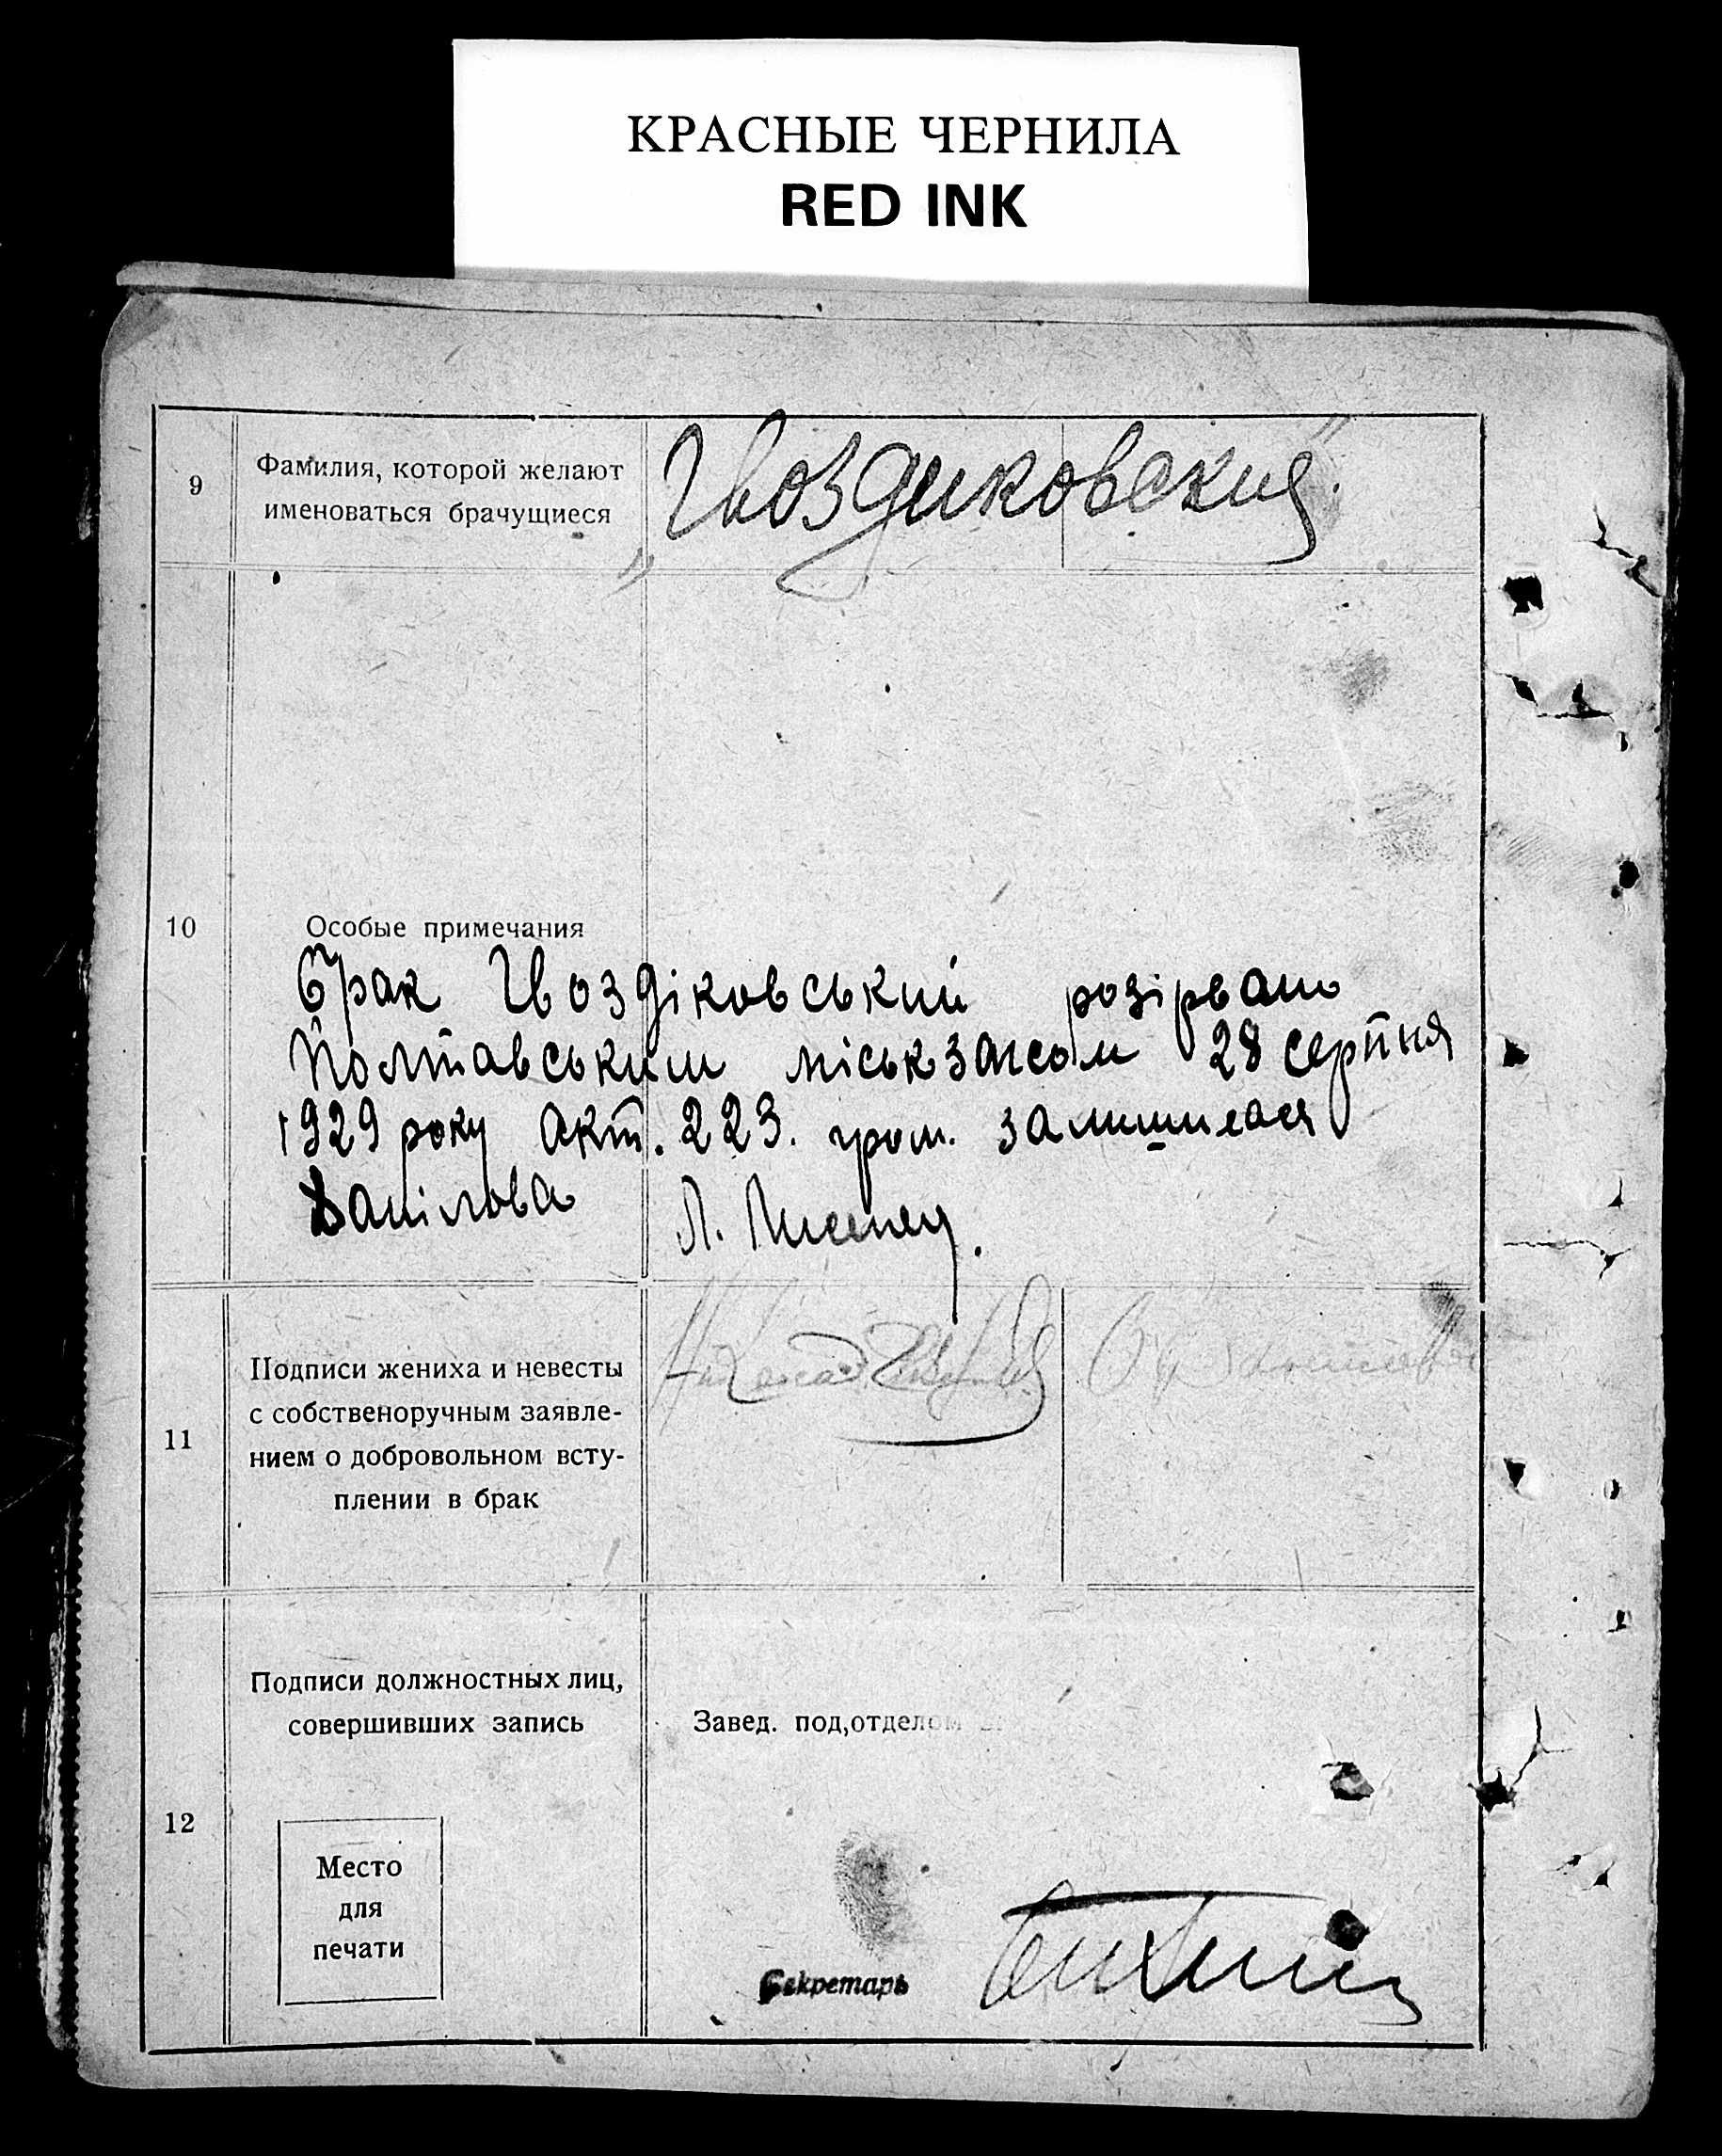 КРАСНЫЕ ЧЕРНИЛА
RED INK
9
Фамилия, которой желают
именоваться брачущиеся
„Гвоздиковский“
10
Особые примечания
Брак Гвоздіковський розірвано
Полтавським міськзагсом 28 серпня
1929 року акт. 223. гром. залишилася
Данілова Л.
11
Подписи жениха и невесты
с собственоручным заявле-
нием о добровольном всту-
плении в брак
12
Подписи должностных лиц,
совершивших запись
Завед. под,отделом
Место
для
печати
Секретарь